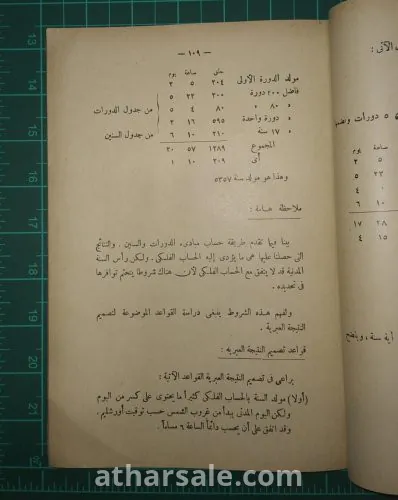 — ١٠٩ —
حلق ساعة يوم
مولد الدورة الأولى ٢٠٤ ٥ ٣
فاضل ٢٠٠ دورة ٢٠٠ ٢٢ ٥
» ٨٠ » ٨٠ ٤ ٥ من جدول الدورات
» دورة واحدة ٥٩٥ ١٦ ٢
» ١٧ سنة ٢١٠ ١٠ ٦ من جدول السنين
المجموع ١٢٨٩ ٥٧ ٢٠
أى ٢٠٩ ١٠ ١
وهذا هو مولد سنة ٥٣٥٧
ملاحظة هامة :
بينا فيما تقدم طريقة حساب مبادىء الدورات والسنين . والنتائج
التى حصلنا عليها هى ما يؤدى إليه الحساب الفلكى . ولكن رأس السنة
المدنية قد لا يتفق مع الحساب الفلكى لأن هناك شروطا يتحتم توافرها
فى تحديده .
ولفهم هذه الشروط ينبغى دراسة القواعد الموضوعة لتصميم
النتيجة العبرية .
قواعد تصميم النتيجة العبرية :
يراعى فى تصميم النتيجة العبرية القواعد الآتية :
(أولا) مولد السنة بالحساب الفلكى كثيراً ما يحتوى على كسر من اليوم
ولكن اليوم المدنى يبدأ من غروب الشمس حسب توقيت أورشليم .
وقد اتفق على أن يحسب دائماً الساعة ٦ مساءاً .
ـ الآتى :
٥ دورات ونضم
ساعة يوم
٥ ٣
٢٢ ٥
٤ ٠
١٠ ٦
٢٨ ١٧
١٥ ٤
أية سنة ، ويتضح
13
14
15
16
17
18
19
20
21
atharsale.com